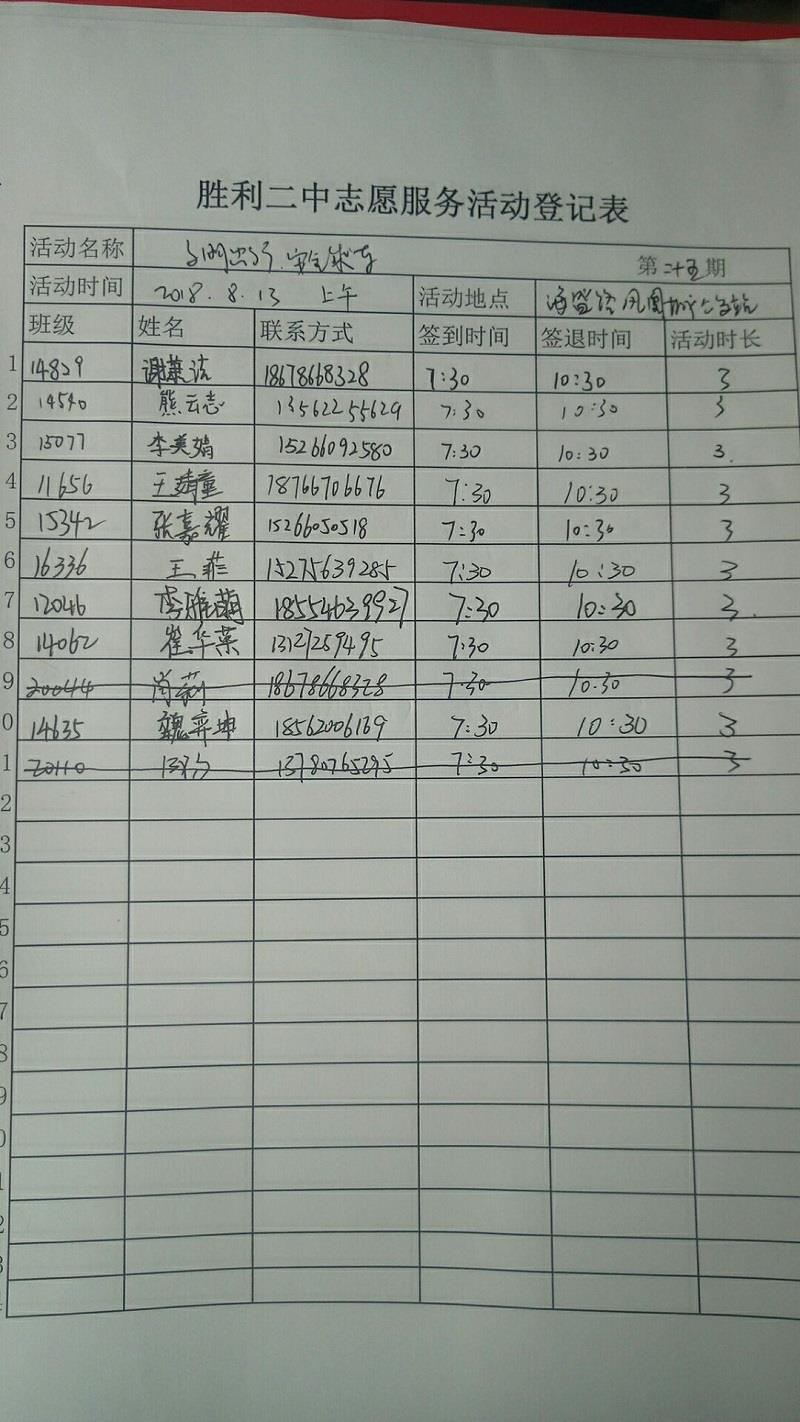 胜利二中志愿服务活动登记表
活动名称 文明出行.安全乘车 第二十五期
活动时间 2018.8.13 上午 活动地点 凤凰城
班级 姓名 联系方式 签到时间 签退时间 活动时长
1 14829 谢 18678668328 7:30 10:30 3
2 14540 熊云志 13562255629 7:30 10:30 3
3 15077 李美娟 15266092580 7:30 10:30 3.
4 11656 王靖童 18766706676 7:30 10:30 3
5 15342 张嘉耀 15266050518 7:30 10:30 3
6 16336 王菲 15275639285 7:30 10:30 3
7 12046 李雅 18554639927 7:30 10:30 3.
8 14062 崔华荣 13127259495 7:30 10:30 3
9 20044 肖莉 18678668328 7:30 10:30 3
0 14635 魏弈坤 18562006139 7:30 10:30 3
1 20110 13780765295 7:30 10:30 3
2
3
4
5
6
7
8
9
0
1
2
3